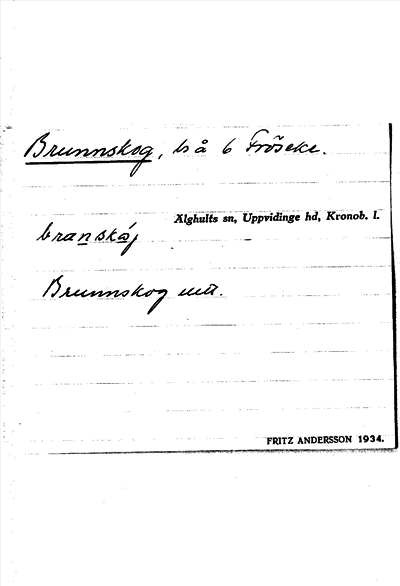 Brunnskog, ls å b Fröseke.
Älghults sn, Uppvidinge hd, Kronob. l.
branskåj
Brunnskog utt.
FRITZ ANDERSSON 1934.